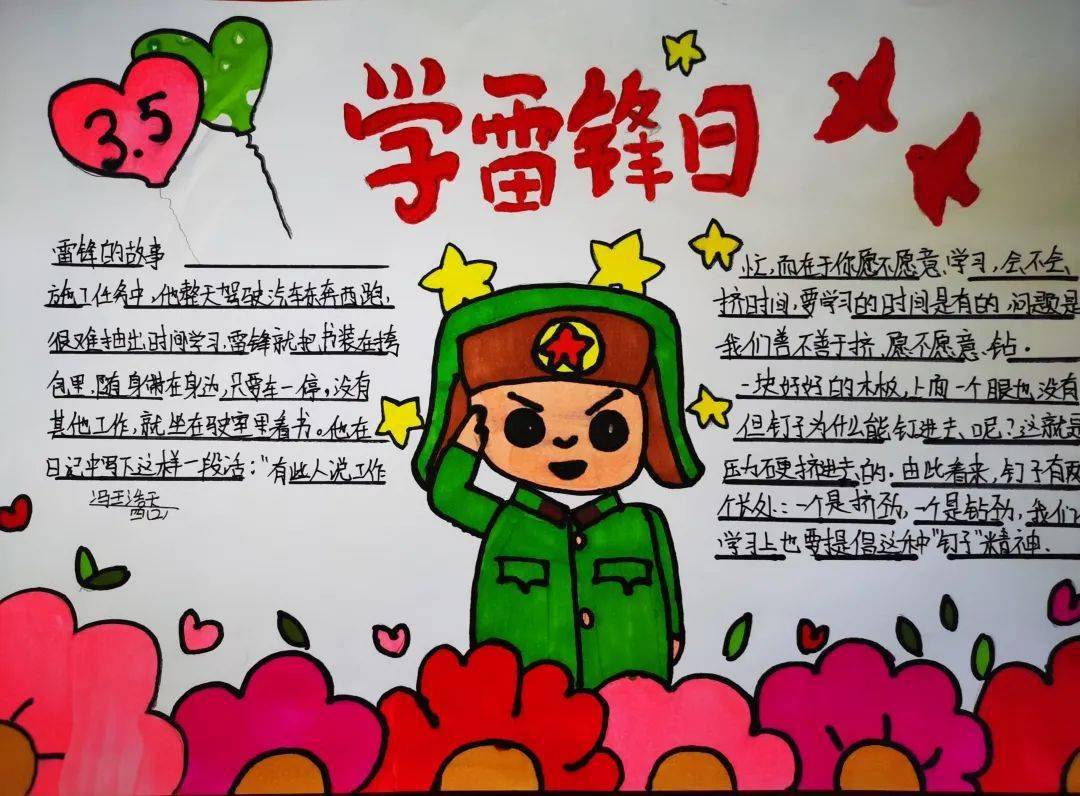 3.5
学雷锋日
雷锋的故事
施工任务中,他整天驾驶汽车东奔西跑,
很难抽出时间学习,雷锋就把书装在挎
包里,随身带在身边,只要车一停,没有
其他工作,就坐在驶室里看书。他在
日记中写下这样一段话:"有些人说工作
忙,而在于你愿不愿意、学习,会不会、
挤时间,要学习的时间是有的,问题是
我们善不善于挤,愿不愿意、钻.
一块好好的木板,上面一个眼也没有
但钉子为什么能钉进去、呢?这就是
压力硬挤进去、的.由此看来,钉子有两
个长处:一个是挤劲,一个是钻劲,我们
学习上也要提倡这种"钉子"精神.